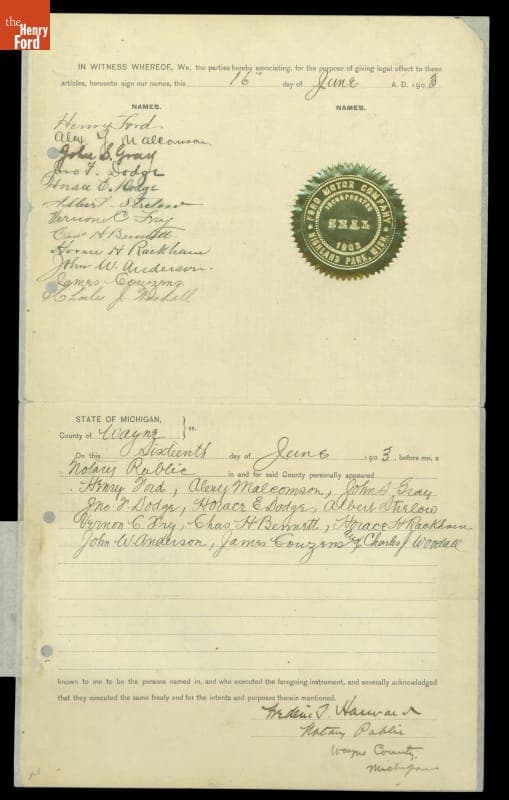 the
Henry
Ford
IN WITNESS WHEREOF, We, the parties hereby associating, for the purpose of giving legal effect to these
articles, hereunto sign our names, this 16" day of June A. D. 1903
NAMES. NAMES.
Henry Ford
Alex. Y. Malcomson
John S. Gray
Jno F. Dodge
Horace E. Dodge
Albert Strelow
Vernon C. Fry
Chas H. Bennett
Horace H Rackham
John W. Anderson.
James Couzens
Charles J. Woodall
FORD MOTOR COMPANY
INCORPORATED
SEAL
1903
HIGHLAND PARK, MICH.
STATE OF MICHIGAN,
County of Wayne } ss.
On this Sixteenth day of June 1903, before me, a
Notary Public in and for said County personally appeared
Henry Ford, Alex Y Malcomson, John S Gray
Jno F Dodge, Horace E Dodge, Albert Strelow
Vernon C. Fry, Chas H Bennett, Horace H Rackham
John W Anderson, James Couzens & Charles J Woodall
known to me to be the persons named in, and who executed the foregoing instrument, and severally acknowledged
that they executed the same freely and for the intents and purposes therein mentioned.
Notary Public
Wayne County
Michigan